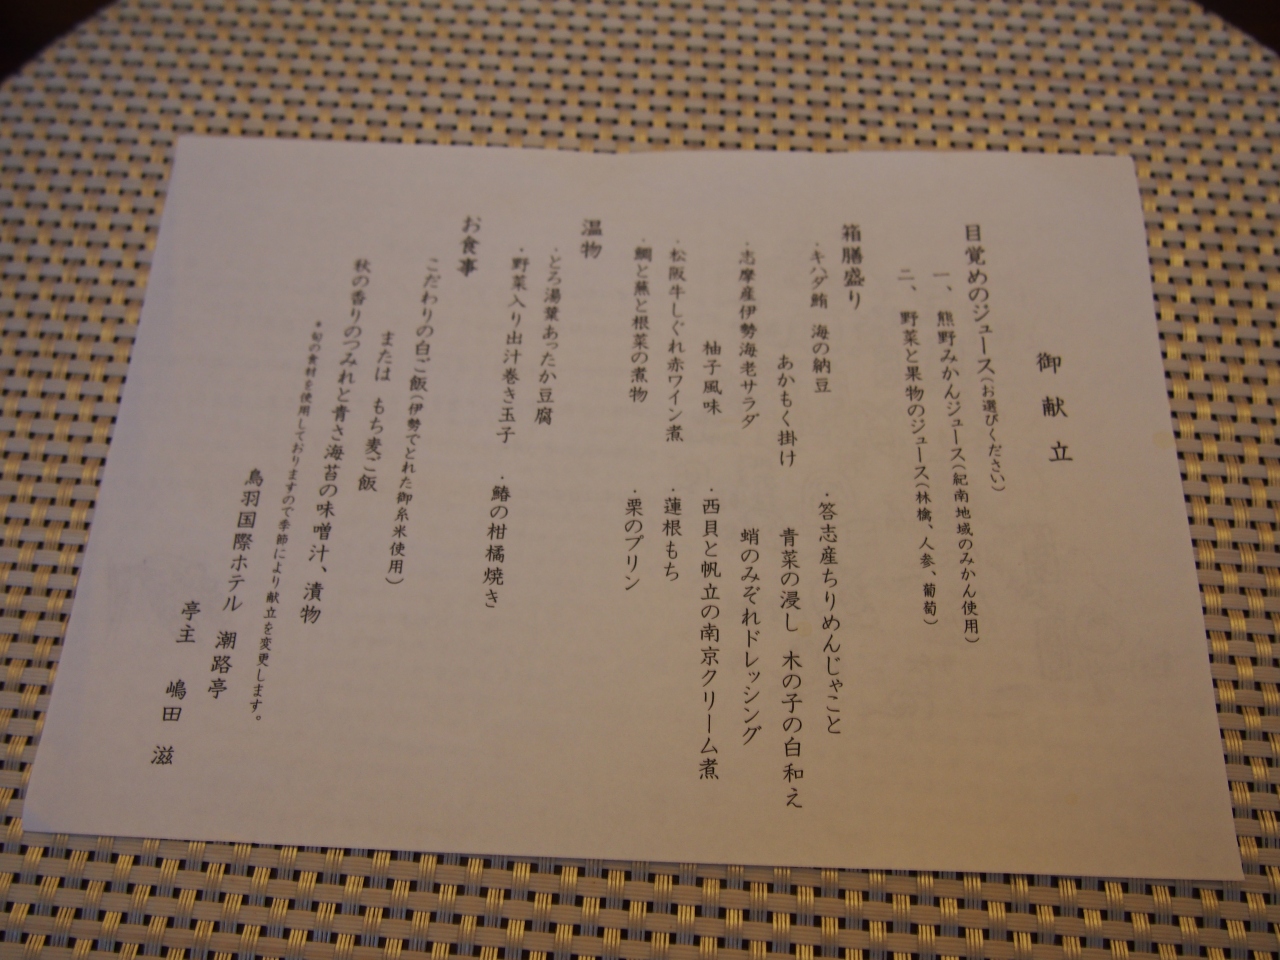 御献立
目覚めのジュース(お選びください)
一、熊野みかんジュース(紀南地域のみかん使用)
二、野菜と果物のジュース(林檎、人参、葡萄)
箱膳盛り
・キハダ鮪 海の納豆
あかもく掛け
・志摩産伊勢海老サラダ
柚子風味
・松阪牛しぐれ赤ワイン煮
・鯛と蕪と根菜の煮物
・答志産ちりめんじゃこと
青菜の浸し 木の子の白和え
蛸のみぞれドレッシング
・西貝と帆立の南京クリーム煮
・蓮根もち
・栗のプリン
温物
・とろ湯葉あったか豆腐
・野菜入り出汁巻き玉子 ・鰆の柑橘焼き
お食事
こだわりの白ご飯(伊勢でとれた御糸米使用)
または もち麦ご飯
秋の香りのつみれと青さ海苔の味噌汁、漬物
*旬の食材を使用しておりますので季節により献立を変更します。
鳥羽国際ホテル 潮路亭
亭主 嶋田 滋